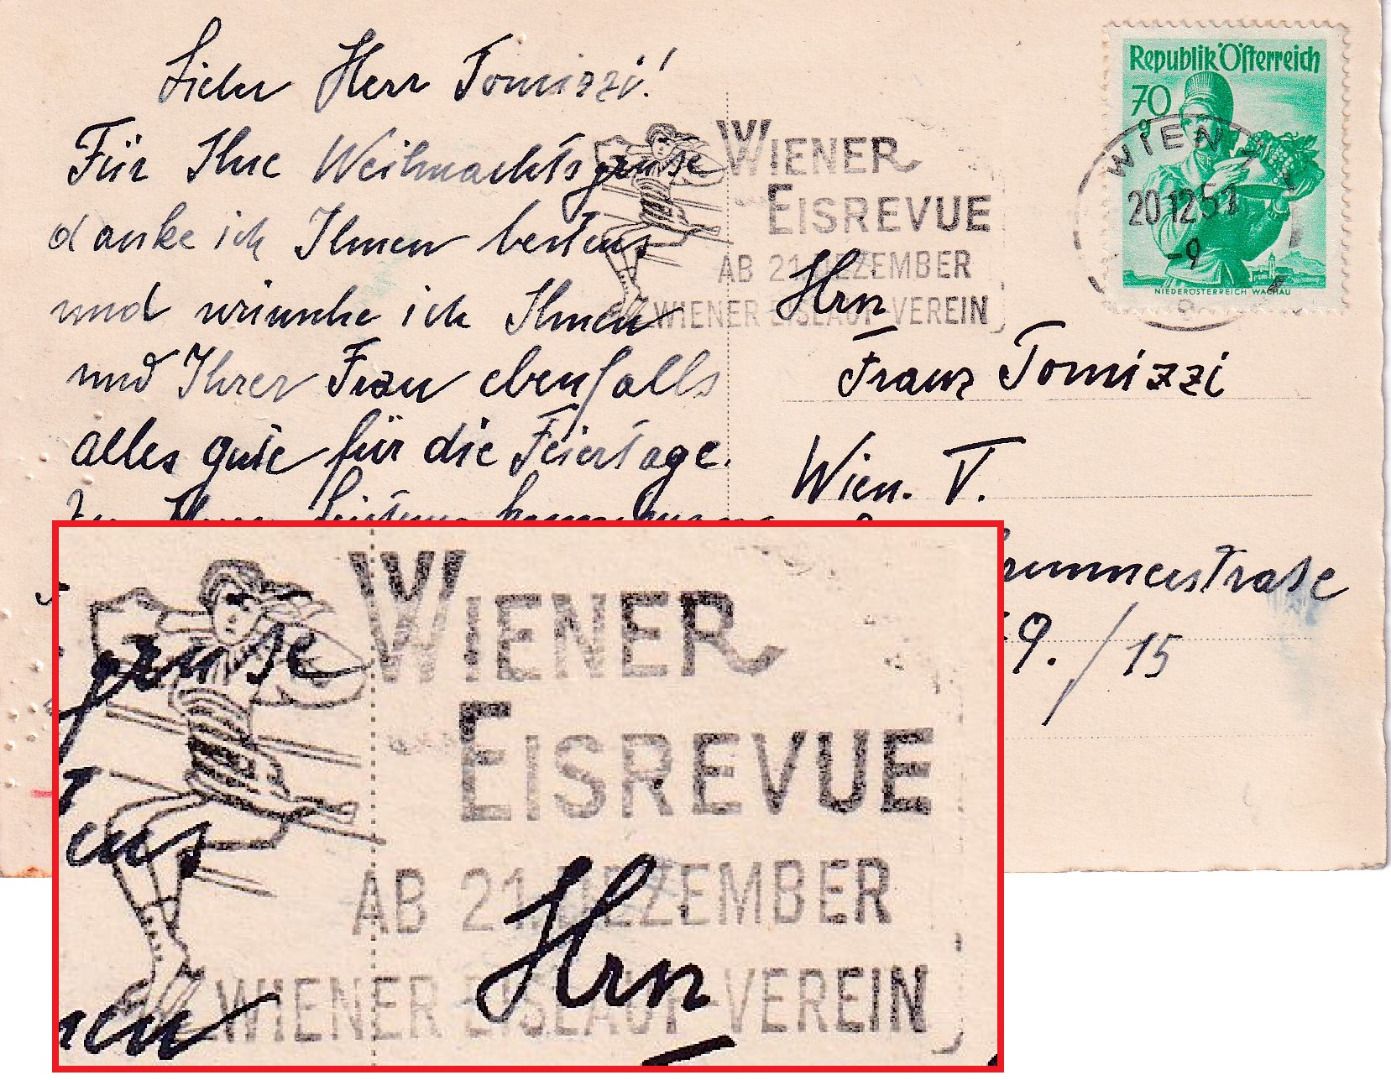 Lieber Herr Tomizzi!
Für Ihre Weihnachtsgrüse
danke ich Ihnen bestens
und wünsche ich Ihnen
und Ihrer Frau ebenfalls
alles gute für die Feiertage.
WIENER
EISREVUE
AB 21. DEZEMBER
WIENER EISLAUF-VEREIN
Republik Österreich
70 g
NIEDERÖSTERREICH WACHAU
WIEN
20.12.51
-9
Hrn
Franz Tomizzi
Wien. V.
9./15
grüse
WIENER
EISREVUE
AB 21. DEZEMBER
Hrn
WIENER EISLAUF-VEREIN